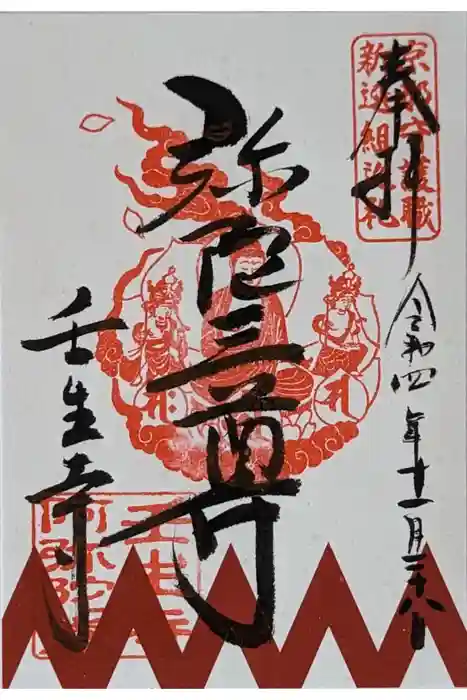 奉拝
令和四年十一月二十八日
京都守護職
新選組 礼
弥陀三尊
壬生寺
壬生寺
阿弥陀